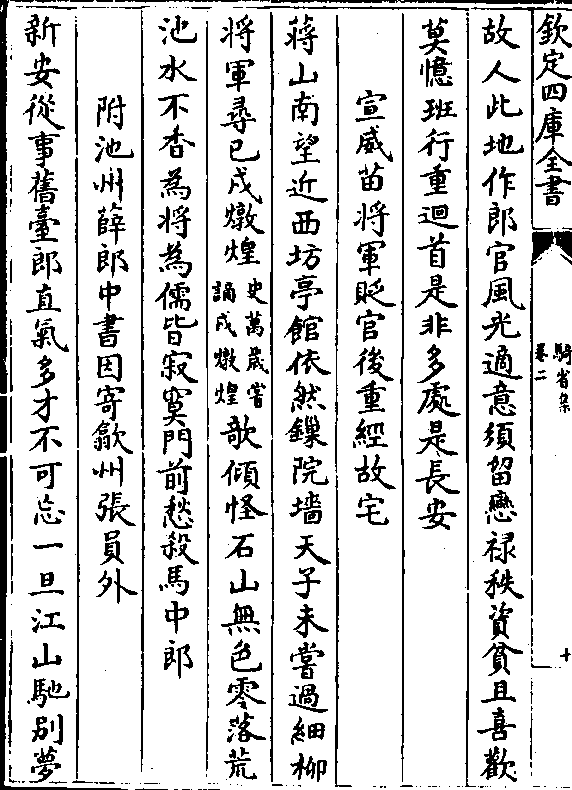 欽定四庫全書
騎省集
卷二
十
故人此地作郎官風光適意須留戀禄秩資貧且喜歡
莫憶班行重迴首是非多處是長安
宣威苗將軍貶官後重經故宅
蔣山南望近西坊亭館依然鏁院墻天子未嘗過細柳
將軍尋已戍燉煌史萬歲嘗謫戍燉煌歌傾怪石山無色零落荒
池水不香為將為儒皆寂寞門前愁殺馬中郎
附池州薛郎中書因寄歙州張員外
新安從事舊臺郎直氣多才不可忘一旦江山馳别夢